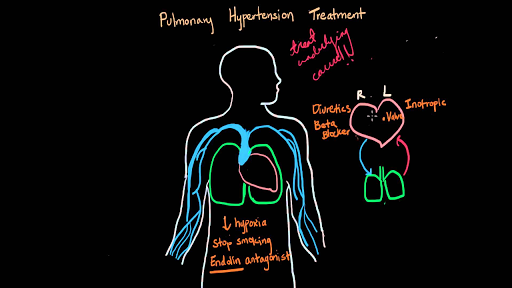 Pulmonary Hypertension Treatment
treat
underlying
cause!!
R L
Diuretics
Beta
Blocker
Valve
Inotropic
↓ hypoxia
Stop smoking
Endolin antagonist